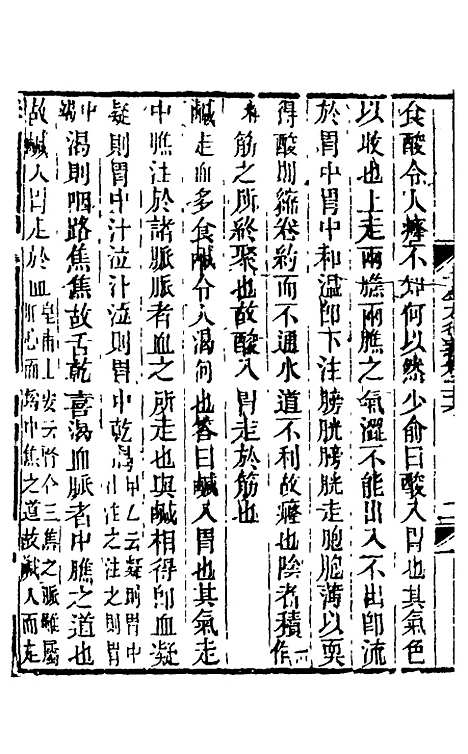 食酸令人癃不知何以然少俞曰酸入胃也其氣色
以收也上走兩膲兩膲之氣澀不能出入不出即流
於胃中胃中和溫即下注膀胱膀胱走胞胞薄以耎
得酸則縮卷約而不通水道不利故癃也陰者積
筋之所終聚也故酸入胃走於筋也
鹹走血多食鹹令人渴何也答曰鹹入胃也其氣走
中膲注於諸脈脈者血之所走也與鹹相得即血凝
凝則胃中汁泣汁泣則胃中乾渴甲乙云凝則胃中汁注之注之則胃中
竭渴則咽路焦焦故舌乾喜渴血脈者中膲之道也
故鹹入胃走於血皇甫士安云腎合三焦之脈雖屬肝心而為中焦之道故鹹入而走